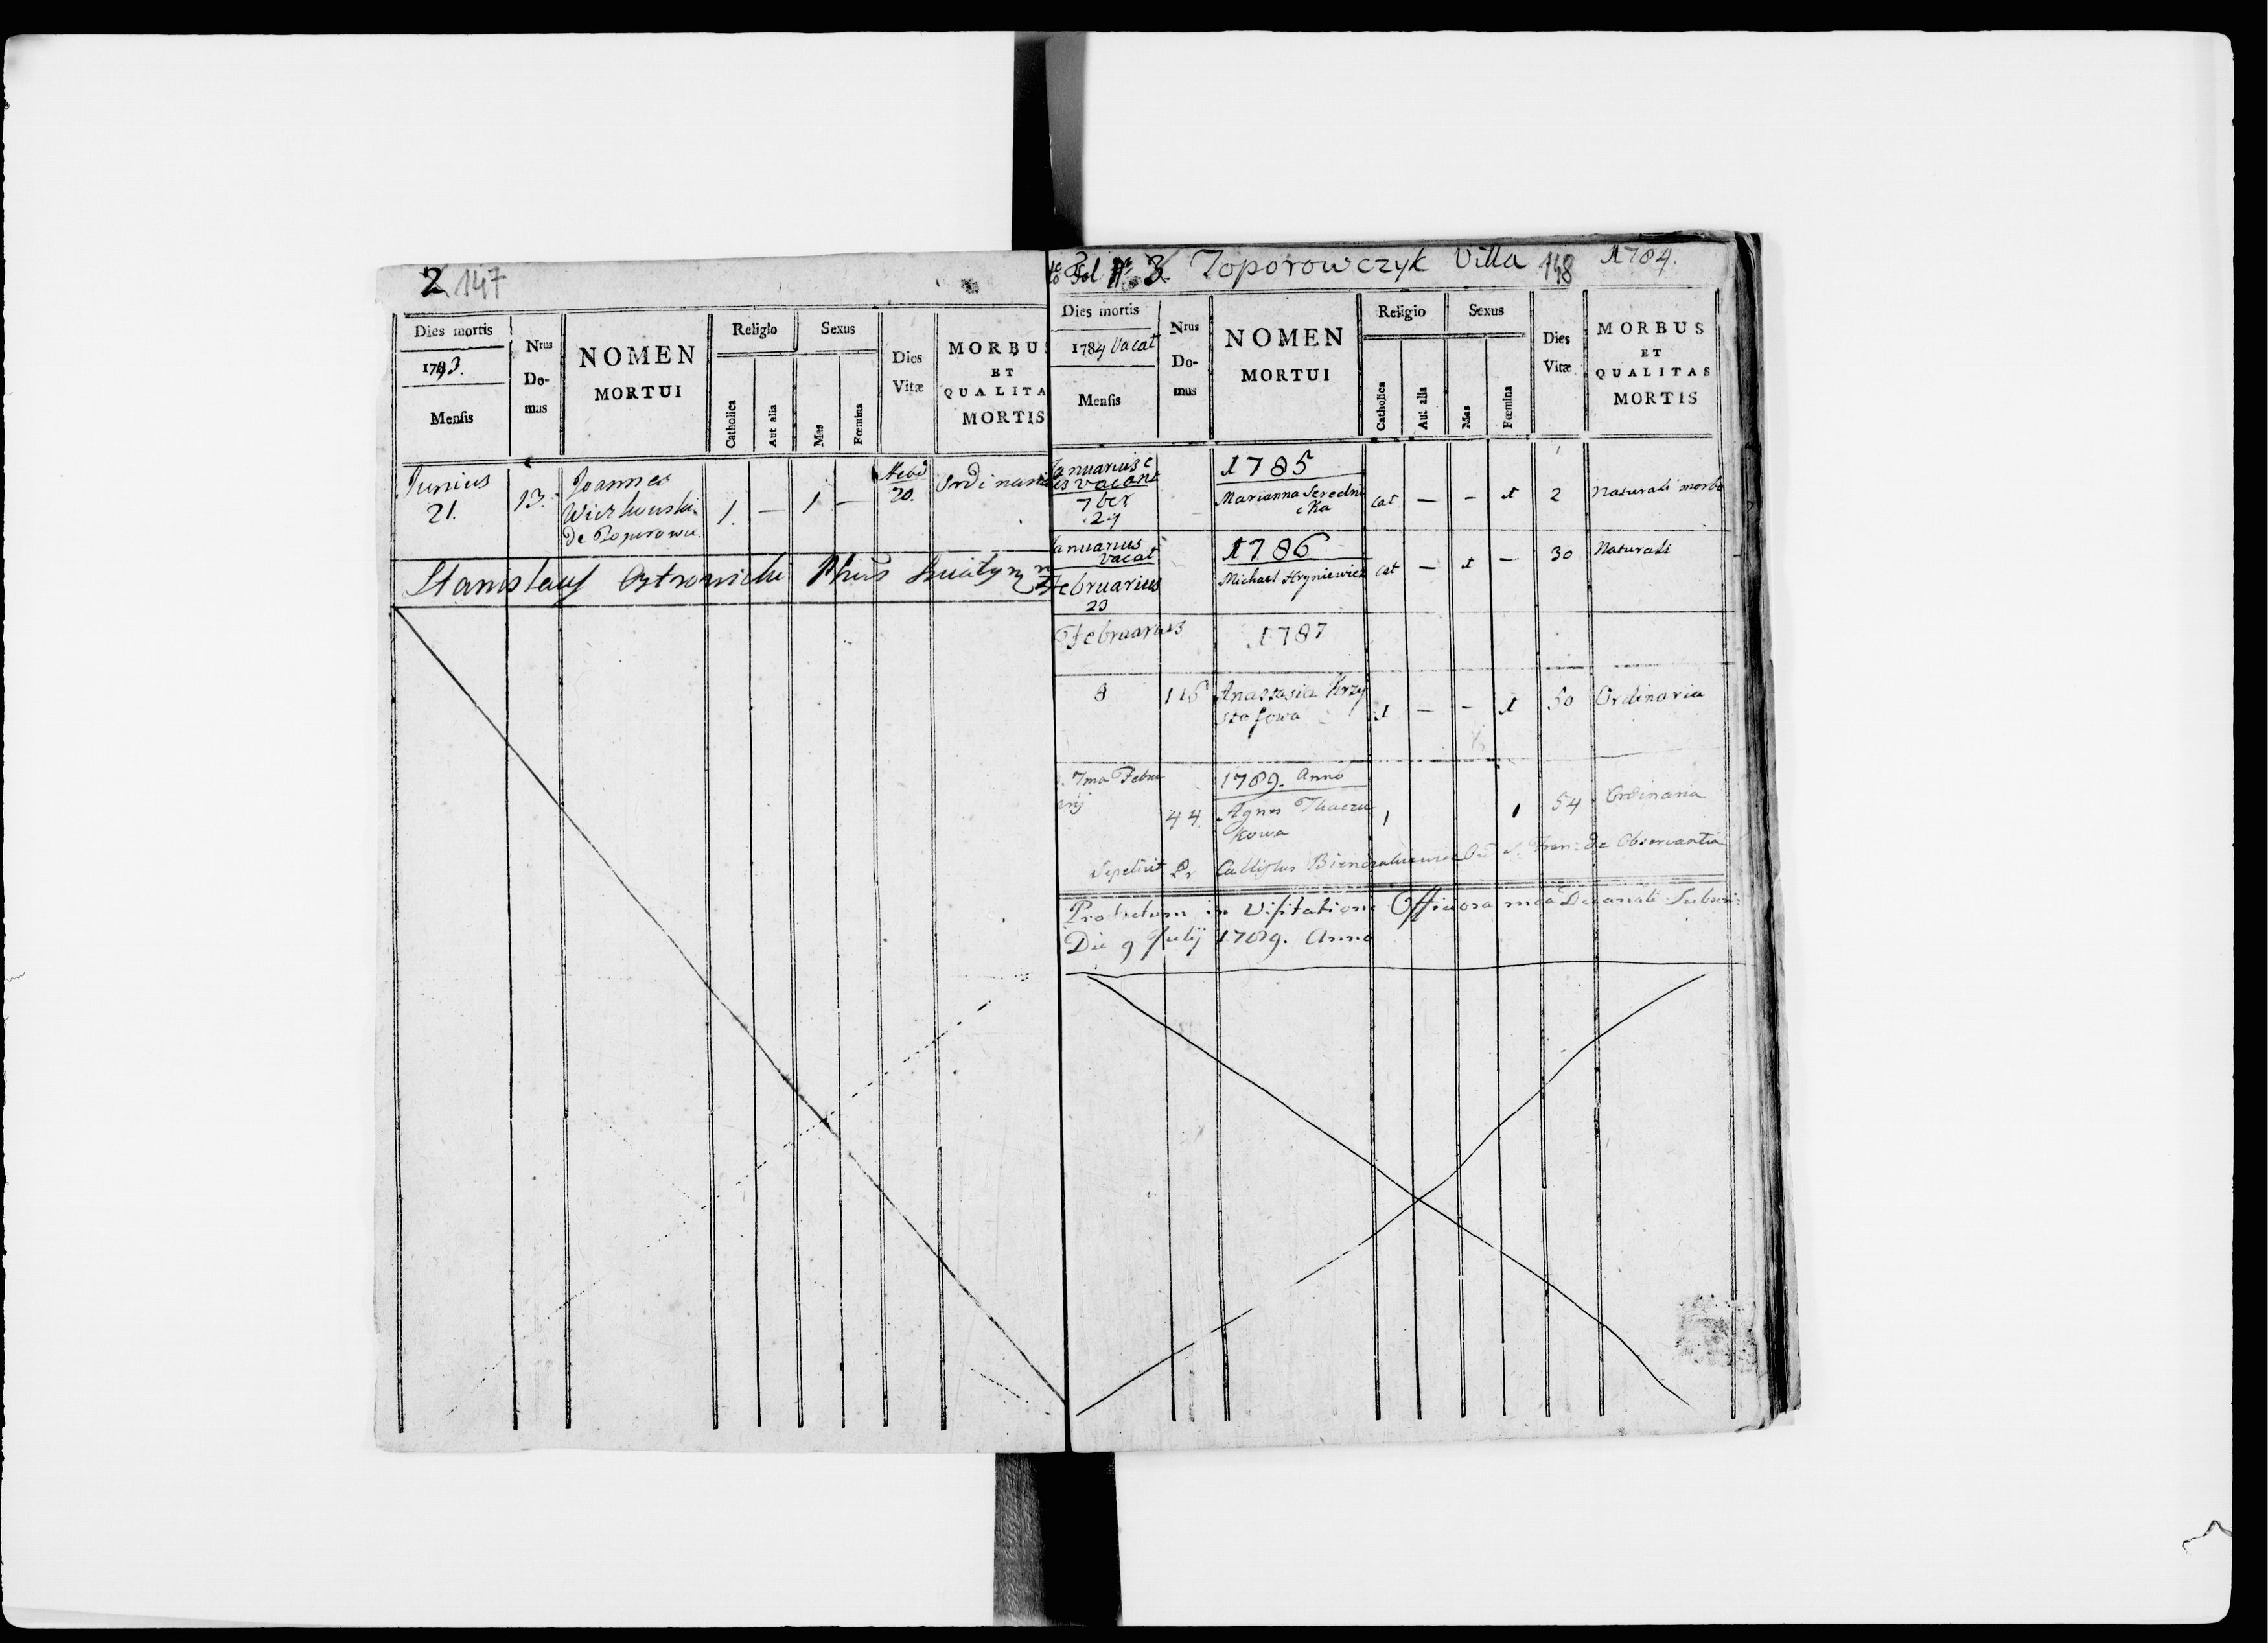 2 147
Dies mortis
1793.
Mensis
Nrus
Do-
mus
NOMEN
MORTUI
Religio
Catholica
Aut alia
Sexus
Mas
Fœmina
Dies
Vitæ
MORBUS
ET
QUALITA
MORTIS
Junius
21.
13.
Joannes
de Toporowce.
1.
—
1
—
Hebd
20.
Ordinaria
Stanislaus Ostrowicki
Fol. 3 Toporowczyk Villa 148 1784.
Dies mortis
1784 Vacat
Mensis
Nrus
Do-
mus
NOMEN
MORTUI
Religio
Catholica
Aut alia
Sexus
Mas
Fœmina
Dies
Vitæ
MORBUS
ET
QUALITAS
MORTIS
Januarius
vacant
7ber
24
1785
Marianna Seredni
cka
cat
—
–
1
2
Naturali morbo
Januarius
vacat
Februarius
23
1786
Michael Hryniewicz
cat
—
1
—
30
Naturali
Februarius
1787
8
116
Anastasia Krzy
sztofowa
1
—
–
1
50
Ordinaria
7ma Febru
arij
44.
1789. Anno
Agnes Tkaczu
kowa
1
1
54
Ordinaria
Sepelivit Pr Callistus Ord S. Fran: de Observantia
Productum in Visitatione Officiosa mea Decanali
Die 9 Julij 1789. Anno